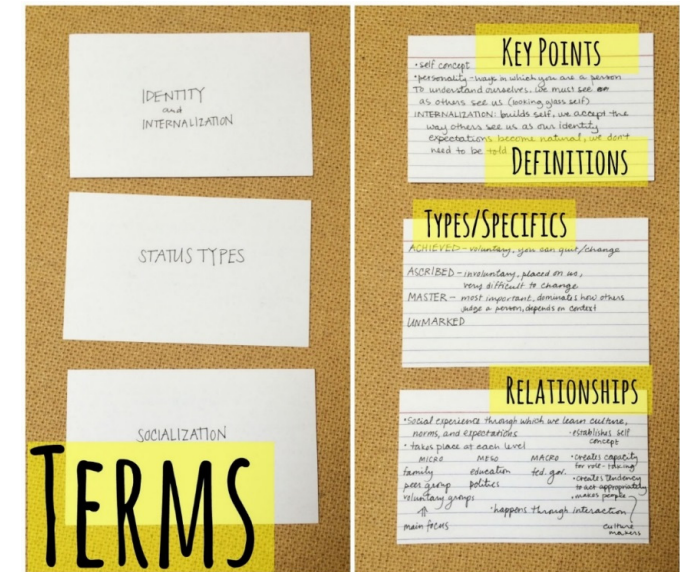 IDENTITY
and
INTERNALIZATION
STATUS TYPES
SOCIALIZATION
TERMS
KEY POINTS
•self concept
•personality-ways in which you are a person
To understand ourselves, we must see
as others see us (looking glass self)
INTERNALIZATION: builds self, we accept the
way others see us as our identity
expectations become natural, we don't
need to be told
DEFINITIONS
TYPES/SPECIFICS
ACHIEVED - voluntary, you can quit/change
ASCRIBED - involuntary, placed on us,
very difficult to change
MASTER - most important, dominates how others
judge a person, depends on context
UNMARKED
RELATIONSHIPS
•Social experience through which we learn culture,
norms, and expectations
•takes place at each level
MICRO MESO MACRO
family education fed. gov.
peer group politics
voluntary groups
⇑
main focus
•happens through interaction
-establishes self
concept
•creates capacity
for role-taking
•creates tendency
to act appropriately
•makes people
culture
makers